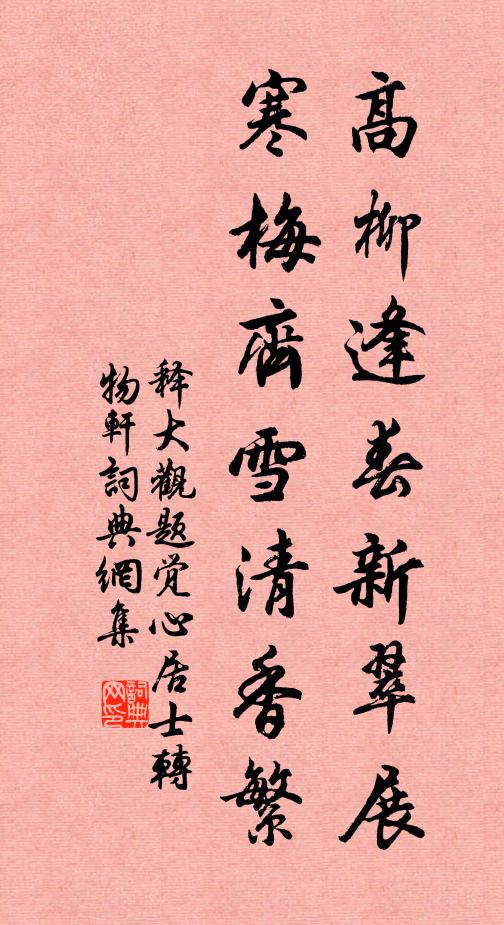 高柳逢春新翠展
寒梅齊雪清香繁
释大觀題觉心居士轉
物軒詞典網集
詞典网印